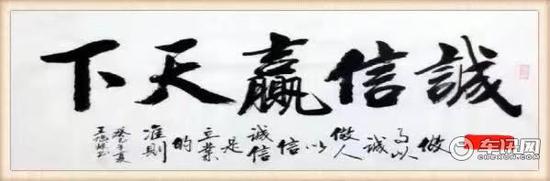 誠信贏天下
做事以誠做人以信誠信是立業的准則
癸巳年夏
车讯网
chexun.com